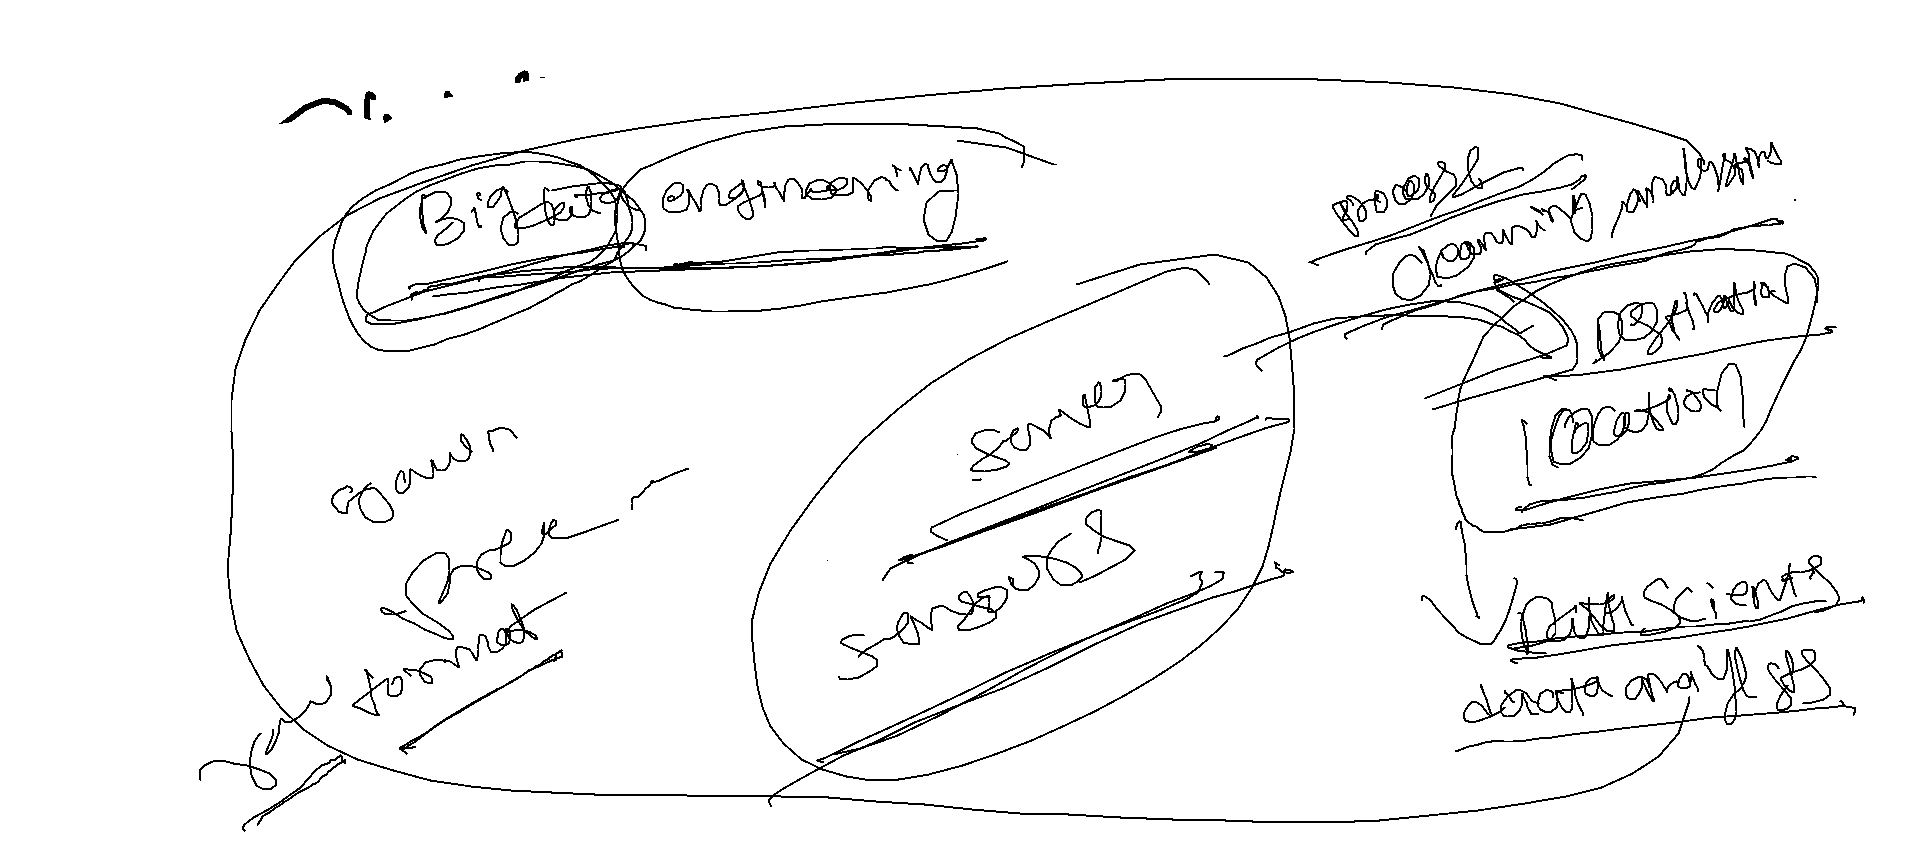 Big data engineering
process
cleanning analysins
Destination
location
server
sensours
format
raw
Data Scients
daata analysts